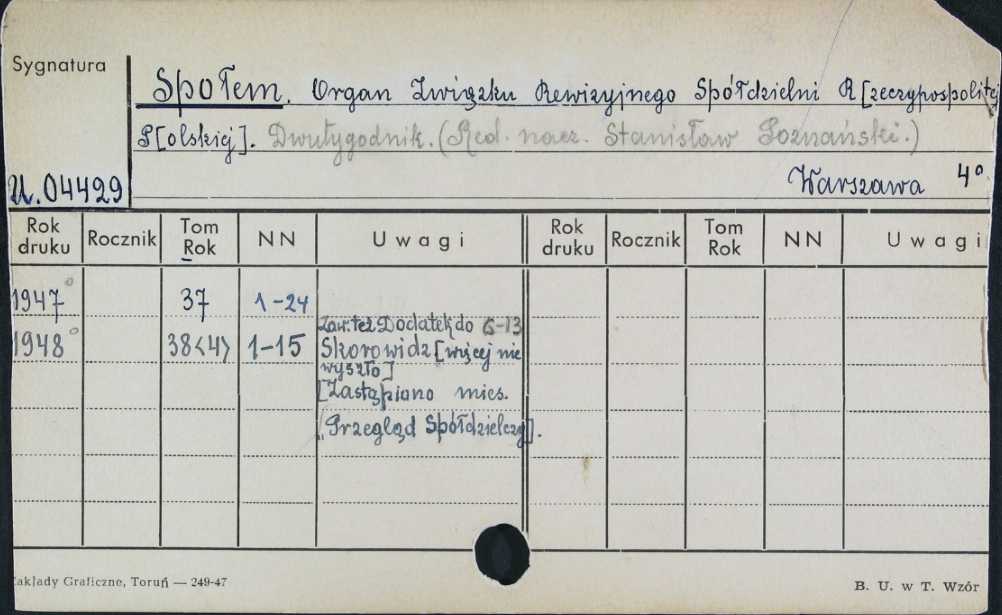 Sygnatura
Społem. Organ Związku Rewizyjnego Spółdzielni R[zeczypospolitej
P[olskiej]. Dwutygodnik. (Red. nacz. Stanisław Poznański.)
U.04429 Warszawa 4°
Rok druku Rocznik Tom Rok NN Uwagi Rok druku Rocznik Tom Rok NN Uwagi
1947° 37 1-24
Zaw. też Dodatek do 6-13
1948° 38<4> 1-15 Skorowidz [więcej nie
wyszło]
[Zastąpiono mies.
"Przegląd Spółdzielczy].
Zakłady Graficzne, Toruń — 249-47 B. U. w T. Wzór